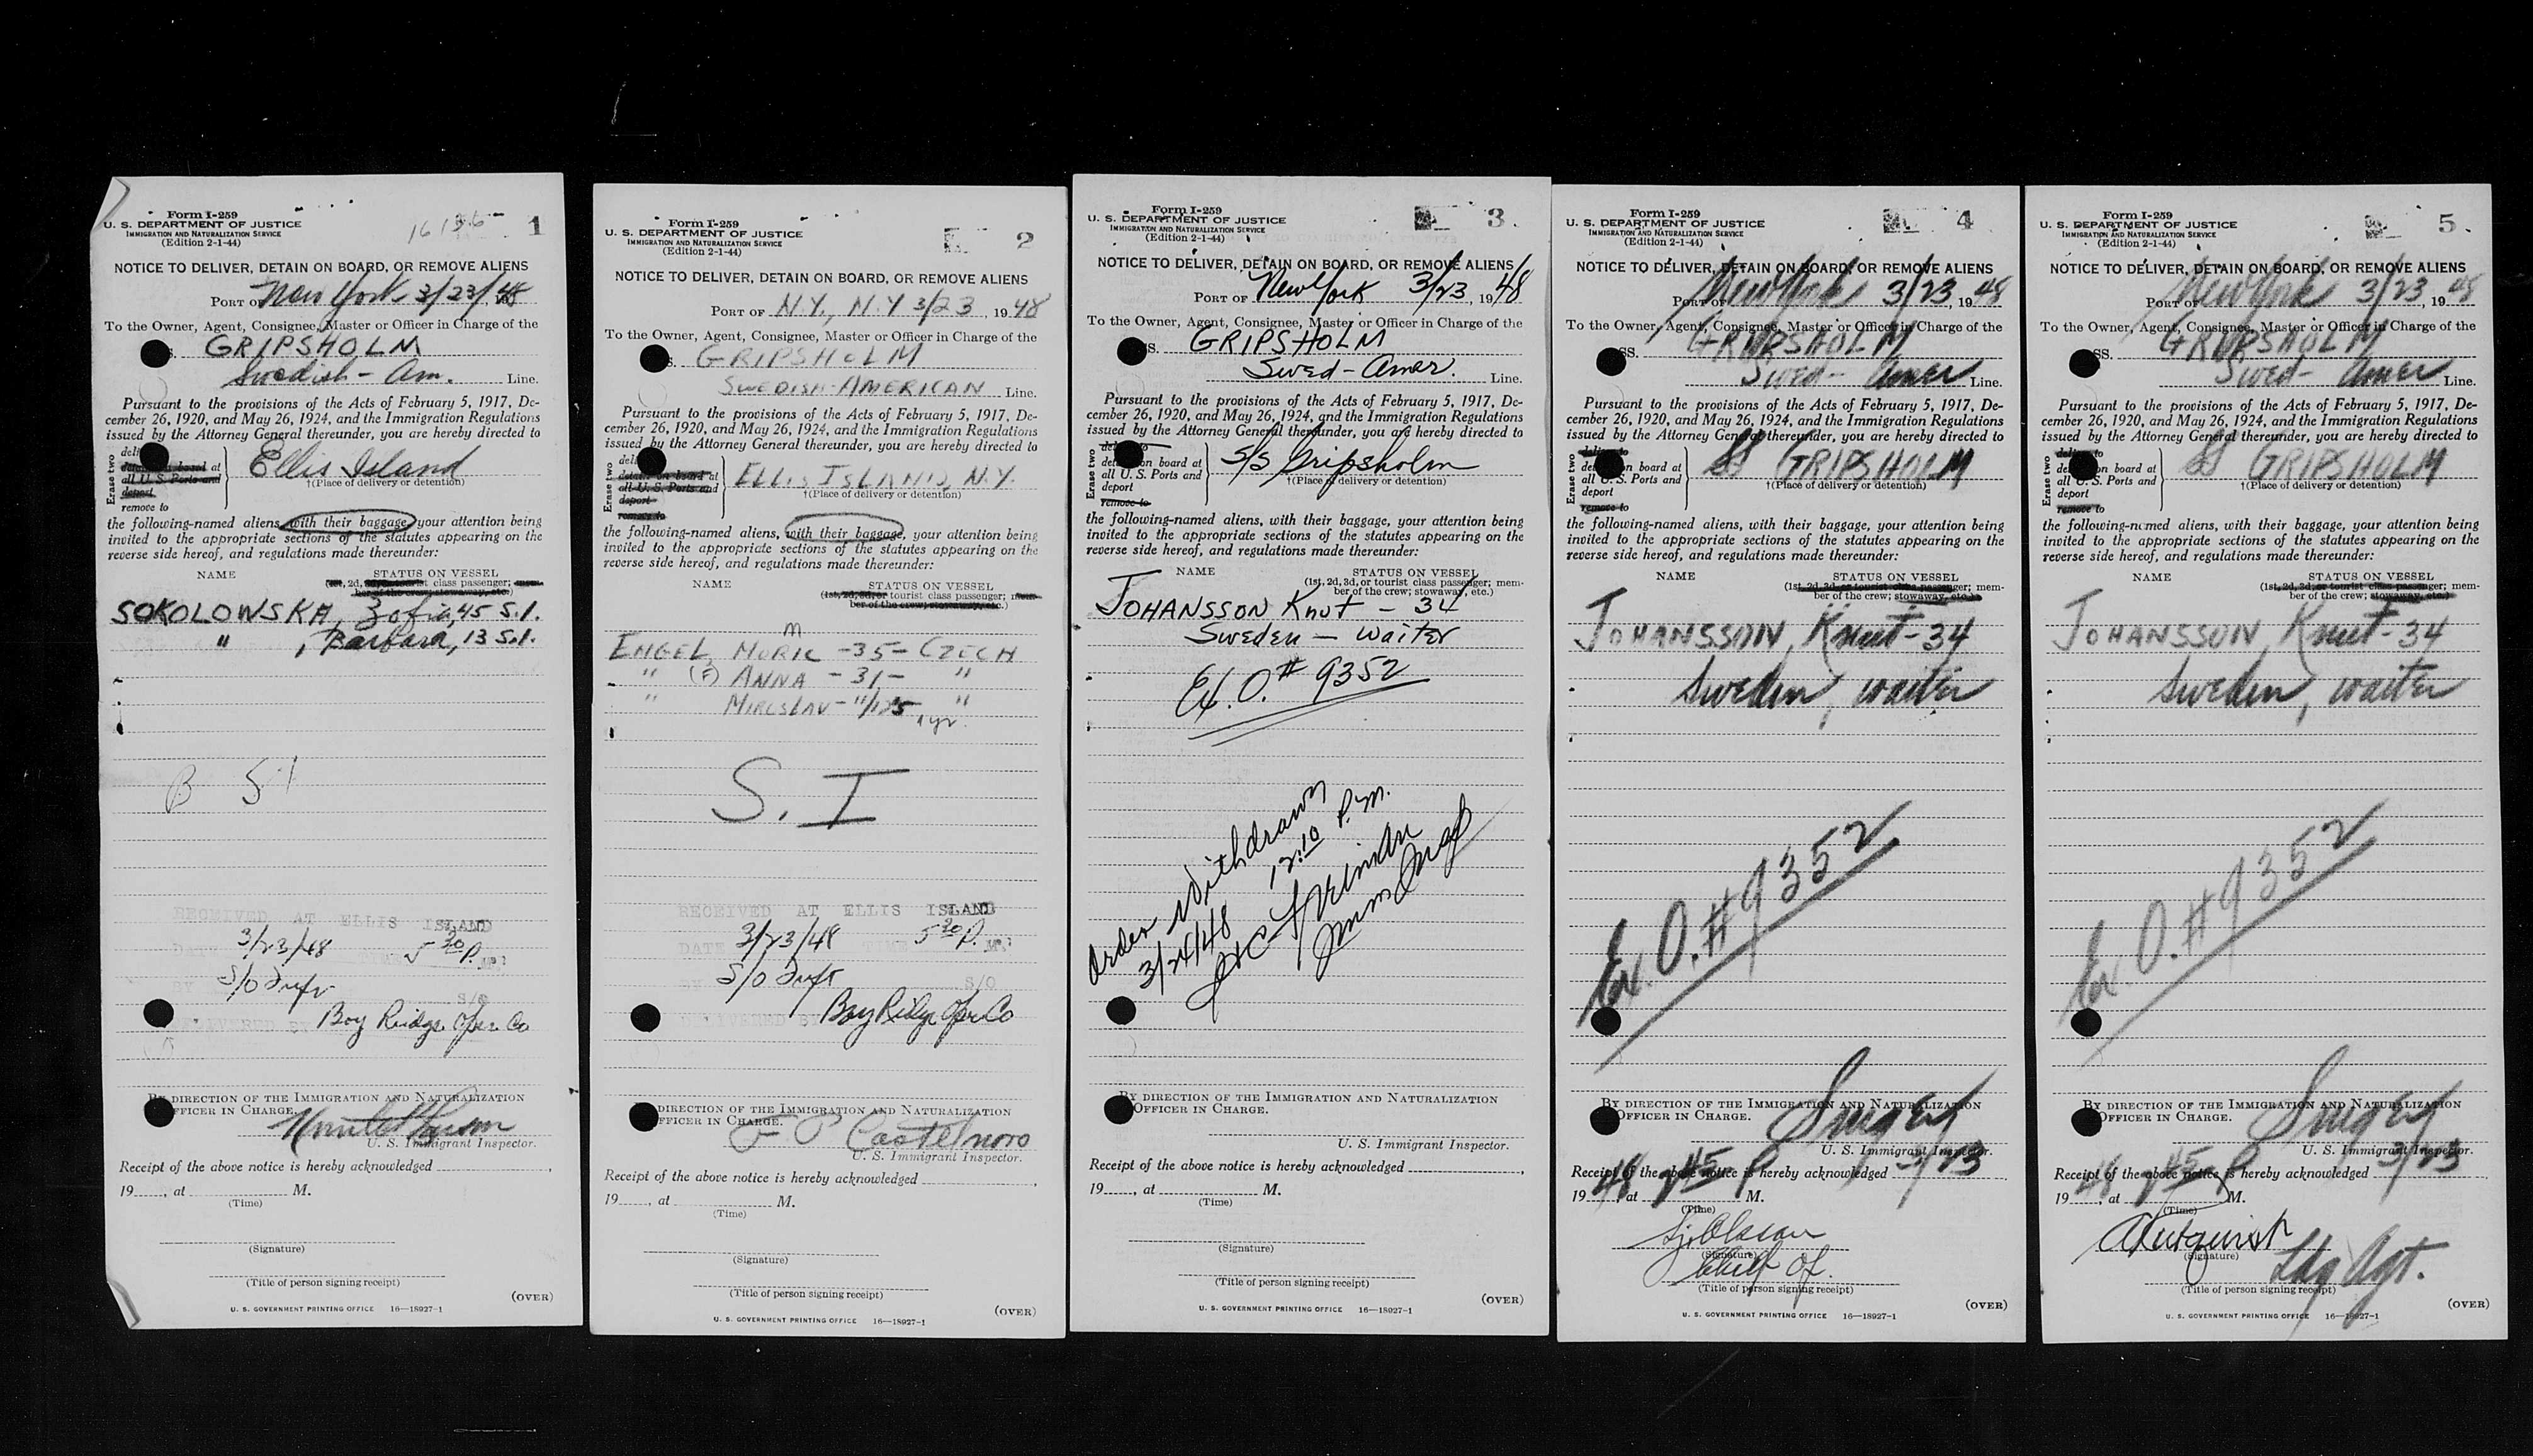 Form I-259
U. S. DEPARTMENT OF JUSTICE
IMMIGRATION AND NATURALIZATION SERVICE
(Edition 2-1-44)
1
NOTICE TO DELIVER, DETAIN ON BOARD, OR REMOVE ALIENS
PORT OF New York 3/23/48
To the Owner, Agent, Consignee, Master or Officer in Charge of the
GRIPSHOLM
Swedish - Am. Line.
Pursuant to the provisions of the Acts of February 5, 1917, De-
cember 26, 1920, and May 26, 1924, and the Immigration Regulations
issued by the Attorney General thereunder, you are hereby directed to
Erase two
detain on board at
all U. S. Ports and
deport
remove to
Ellis Island
†(Place of delivery or detention)
the following-named aliens, with their baggage, your attention being
invited to the appropriate sections of the statutes appearing on the
reverse side hereof, and regulations made thereunder:
NAME STATUS ON VESSEL
SOKOLOWSKA, Zofia, 45 S.I.
" , Barbara, 13 S.I.
B SI
RECEIVED AT ELLIS ISLAND
3/23/48 5 30 P. M.
S/O
Bay Ridge Oper. Co
BY DIRECTION OF THE IMMIGRATION AND NATURALIZATION
OFFICER IN CHARGE.
U. S. Immigrant Inspector.
Receipt of the above notice is hereby acknowledged
19 , at M.
(Time)
(Signature)
(Title of person signing receipt)
(OVER)
U. S. GOVERNMENT PRINTING OFFICE 16—18927-1
Form I-259
U. S. DEPARTMENT OF JUSTICE
IMMIGRATION AND NATURALIZATION SERVICE
(Edition 2-1-44)
2
NOTICE TO DELIVER, DETAIN ON BOARD, OR REMOVE ALIENS
PORT OF N.Y., N.Y 3/23, 1948
To the Owner, Agent, Consignee, Master or Officer in Charge of the
GRIPSHOLM
SWEDISH-AMERICAN Line.
Pursuant to the provisions of the Acts of February 5, 1917, De-
cember 26, 1920, and May 26, 1924, and the Immigration Regulations
issued by the Attorney General thereunder, you are hereby directed to
Erase two
detain on board at
all U. S. Ports and
deport
remove to
ELLIS ISLAND, N.Y.
†(Place of delivery or detention)
the following-named aliens, with their baggage, your attention being
invited to the appropriate sections of the statutes appearing on the
reverse side hereof, and regulations made thereunder:
NAME STATUS ON VESSEL
(1st, 2d, 3d, or tourist class passenger; mem-
ber of the crew; stowaway, etc.)
M
ENGEL, MORIC - 35 - CZECH
" (F) ANNA - 31 - "
" MIROSLAV - "
1 yr.
S. I
RECEIVED AT ELLIS ISLAND
DATE 3/23/48 TIME 5 30 P. M.
S/O
Bay Ridge Oper Co
BY DIRECTION OF THE IMMIGRATION AND NATURALIZATION
OFFICER IN CHARGE.
Castelnoro
U. S. Immigrant Inspector.
Receipt of the above notice is hereby acknowledged
19 , at M.
(Time)
(Signature)
(Title of person signing receipt)
(OVER)
U. S. GOVERNMENT PRINTING OFFICE 16—18927-1
Form I-259
U. S. DEPARTMENT OF JUSTICE
IMMIGRATION AND NATURALIZATION SERVICE
(Edition 2-1-44)
3
NOTICE TO DELIVER, DETAIN ON BOARD, OR REMOVE ALIENS
PORT OF New York 3/23, 1948
To the Owner, Agent, Consignee, Master or Officer in Charge of the
SS. GRIPSHOLM
Swed-Amer. Line.
Pursuant to the provisions of the Acts of February 5, 1917, De-
cember 26, 1920, and May 26, 1924, and the Immigration Regulations
issued by the Attorney General thereunder, you are hereby directed to
Erase two
deliver to
detain on board at
all U. S. Ports and
deport
remove to
S/S Gripsholm
†(Place of delivery or detention)
the following-named aliens, with their baggage, your attention being
invited to the appropriate sections of the statutes appearing on the
reverse side hereof, and regulations made thereunder:
NAME STATUS ON VESSEL
(1st, 2d, 3d, or tourist class passenger; mem-
ber of the crew; stowaway, etc.)
JOHANSSON Knut - 34
Sweden - Waiter
Ex. O. # 9352
Order Withdrawn
3/24/48 12:10 P.M.
Imm Insp
BY DIRECTION OF THE IMMIGRATION AND NATURALIZATION
OFFICER IN CHARGE.
U. S. Immigrant Inspector.
Receipt of the above notice is hereby acknowledged
19 , at M.
(Time)
(Signature)
(Title of person signing receipt)
(OVER)
U. S. GOVERNMENT PRINTING OFFICE 16—18927-1
Form I-259
U. S. DEPARTMENT OF JUSTICE
IMMIGRATION AND NATURALIZATION SERVICE
(Edition 2-1-44)
4
NOTICE TO DELIVER, DETAIN ON BOARD, OR REMOVE ALIENS
PORT OF New York 3/23, 1948
To the Owner, Agent, Consignee, Master or Officer in Charge of the
SS. GRIPSHOLM
Swed- Amer Line.
Pursuant to the provisions of the Acts of February 5, 1917, De-
cember 26, 1920, and May 26, 1924, and the Immigration Regulations
issued by the Attorney General thereunder, you are hereby directed to
Erase two
deliver to
detain on board at
all U. S. Ports and
deport
remove to
SS GRIPSHOLM
†(Place of delivery or detention)
the following-named aliens, with their baggage, your attention being
invited to the appropriate sections of the statutes appearing on the
reverse side hereof, and regulations made thereunder:
NAME STATUS ON VESSEL
(1st, 2d, 3d, or tourist class passenger; mem-
ber of the crew; stowaway, etc.)
JOHANSSON, Knut - 34
Sweden, waiter
Ex. O. # 9352
BY DIRECTION OF THE IMMIGRATION AND NATURALIZATION
OFFICER IN CHARGE.
U. S. Immigrant Inspector.
Receipt of the above notice is hereby acknowledged 3/23
1948, at M.
(Time)
Olsson
(Signature)
Chief Of.
(Title of person signing receipt)
(OVER)
U. S. GOVERNMENT PRINTING OFFICE 16—18927-1
Form I-259
U. S. DEPARTMENT OF JUSTICE
IMMIGRATION AND NATURALIZATION SERVICE
(Edition 2-1-44)
5
NOTICE TO DELIVER, DETAIN ON BOARD, OR REMOVE ALIENS
PORT OF New York 3/23, 1948
To the Owner, Agent, Consignee, Master or Officer in Charge of the
SS. GRIPSHOLM
Swed- Amer Line.
Pursuant to the provisions of the Acts of February 5, 1917, De-
cember 26, 1920, and May 26, 1924, and the Immigration Regulations
issued by the Attorney General thereunder, you are hereby directed to
Erase two
deliver to
detain on board at
all U. S. Ports and
deport
remove to
SS GRIPSHOLM
†(Place of delivery or detention)
the following-named aliens, with their baggage, your attention being
invited to the appropriate sections of the statutes appearing on the
reverse side hereof, and regulations made thereunder:
NAME STATUS ON VESSEL
(1st, 2d, 3d, or tourist class passenger; mem-
ber of the crew; stowaway, etc.)
JOHANSSON, Knut - 34
Sweden, waiter
Ex. O. # 9352
BY DIRECTION OF THE IMMIGRATION AND NATURALIZATION
OFFICER IN CHARGE.
U. S. Immigrant Inspector.
Receipt of the above notice is hereby acknowledged 3/23
1948, at M.
(Time)
(Signature)
Ldg Agt.
(Title of person signing receipt)
(OVER)
U. S. GOVERNMENT PRINTING OFFICE 16—18927-1